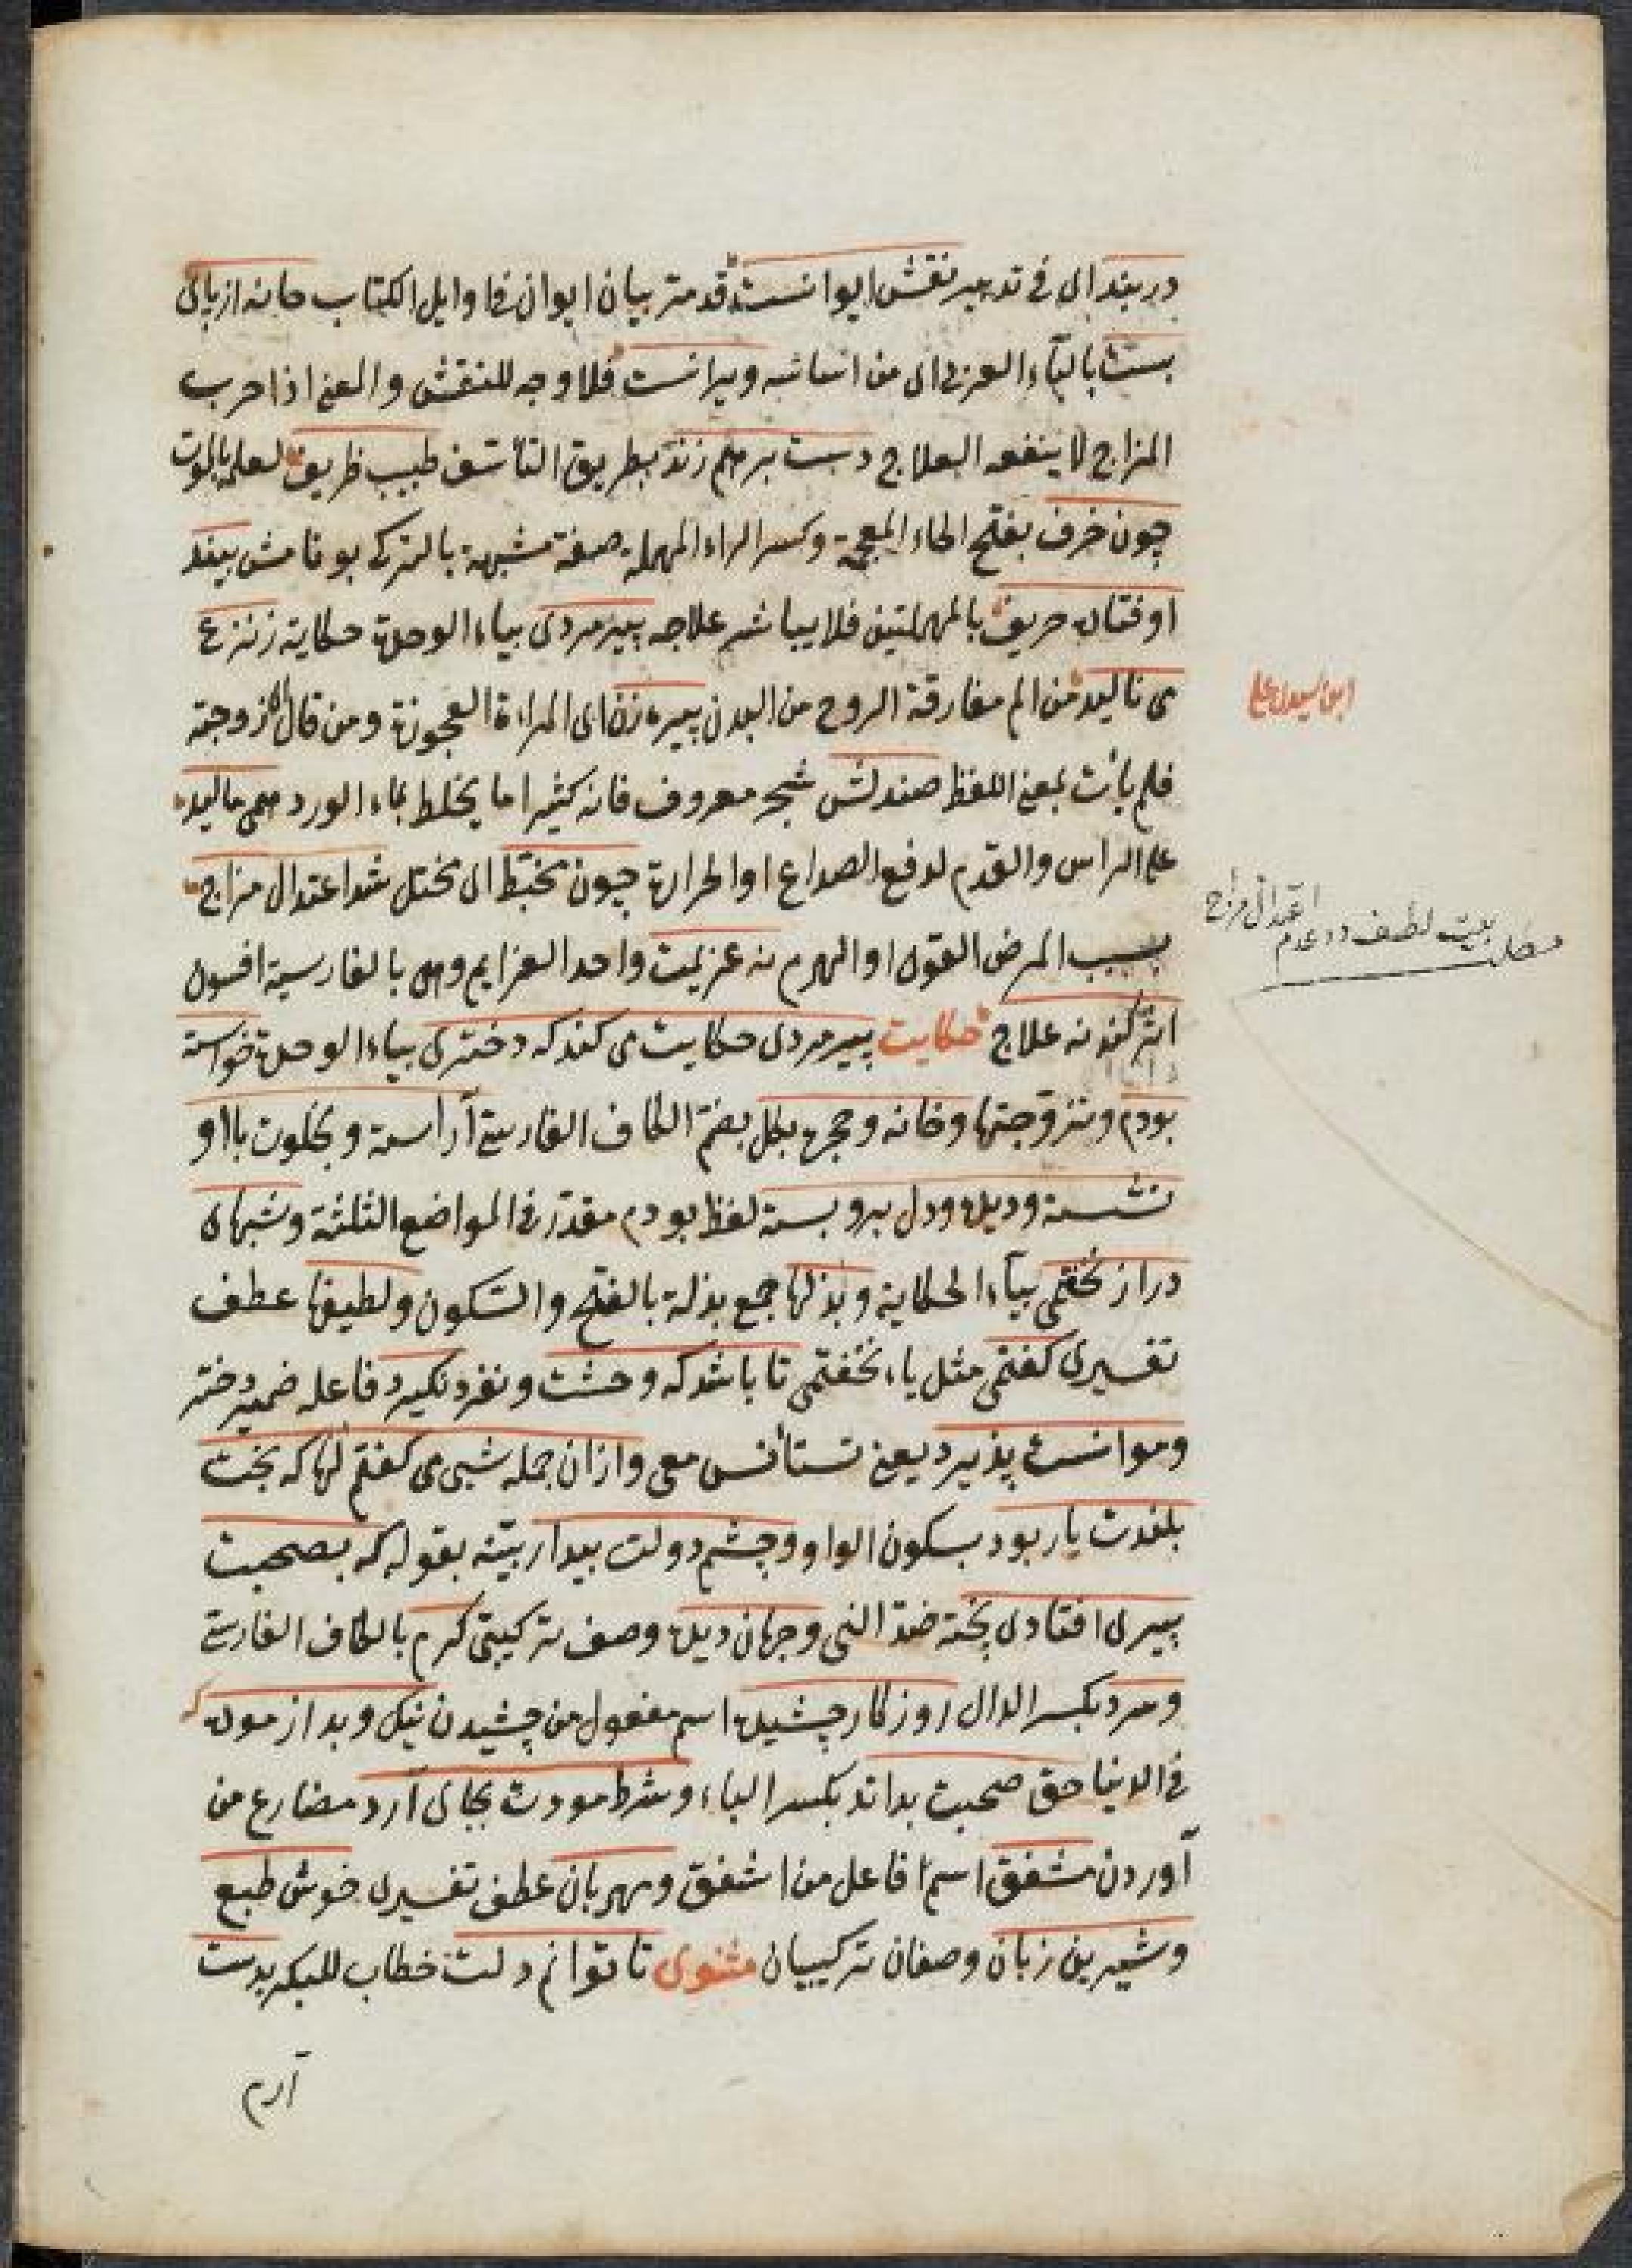 در بند ای فی تدبیر نقش ایوانست قد مر بیان ایوان فی اوایل الکتاب خانه از پای
بست بالباء العربی ای من اساسه ویرانست فلا وجه للنقش والمعنی اذا خرب
المزاج لا ینفعه العلاج دست بر هم زند بطریق التأسف طبیب ظریف لعلمه بالموت
چون خرف بفتح الخاء المعجمة وکسر الراء المهملة صفة مشبهة بالترکی بونامش بیند
اوفتاده حریف بالمهملتین فلا یباشر علاجه پیرمردی بیاء الوحدة حکایة ز نزع
می نالید من الم مفارقة الروح من البدن پیره زن ای المراة العجوزة ومن قال ای زوجته
فلم یأت بمعنی اللفظ صندلش شجر معروف فانه کثیرا ما یخلط بماء الورد همی مالید
علی الراس والقدم لدفع الصداع او الحرارة چون مخبط ای مختل شد اعتدال مزاج
بسبب المرض القوی او الهرم نه عزیمت واحد العزایم وهی بالفارسیة افسون
اثر کند نه علاج حکایت پیرمردی حکایت می کند که دختری بیاء الوحدة خواسته
بودم وتزوجتها وخانه وحجره بکل بضم الکاف الفارسی آراسته وبخلوت با او
نشسته ودیده ودل برو بسته لفظ بودم مقدر فی المواضع الثلثة وشبهای
دراز نخفتمی بیاء الحکایة وبذلها جمع بذلة بالفتح والسکون ولطیفها عطف
تفسیری کفتمی مثل یاء نخفتمی تا باشد که وحشت ونفرت نکیرد فاعله ضمیر دختر
وموانست پذیرد یعنی تستأنس معی وازان جمله شبی می کفتم لها که بخت
بلندت یار بود بسکون الواو وچشم دولت بیدار بیّنه بقوله که بصحبت
پیری افتادی پخته ضد النی وجهان دیده وصف ترکیبی کرم بالکاف الفارسی
وسرد بکسر الدال روزکار چشیده اسم مفعول من چشیدن نیک وبد ازموده
فی الدنیا حق صحبت بداند بکسر الباء وشرط مودت بجای آرد مضارع من
آوردن مشفق اسم فاعل من اشفق ومهربان عطف تفسیری خوش طبع
وشیرین زبان وصفان ترکیبیان مثنوی تا توانم دلت خطاب للبکر بدست
آرم
ابن سیدی علی
مطلب بیت لطیف در عدم
اعتدال مزاج